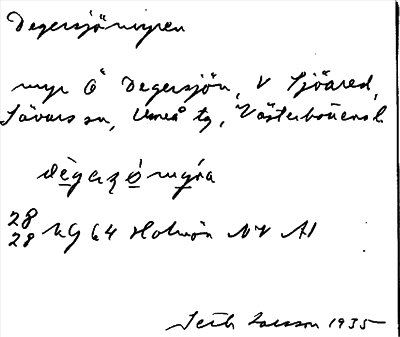 Degersjömyren
myr Ö Degersjön, V Sjöared,
Sävars sn, Umeå tg, Västerbottens l.
dègerʂö̀mýra
28
28 NG 64 Holmön NV A1
Seth Larsson 1935